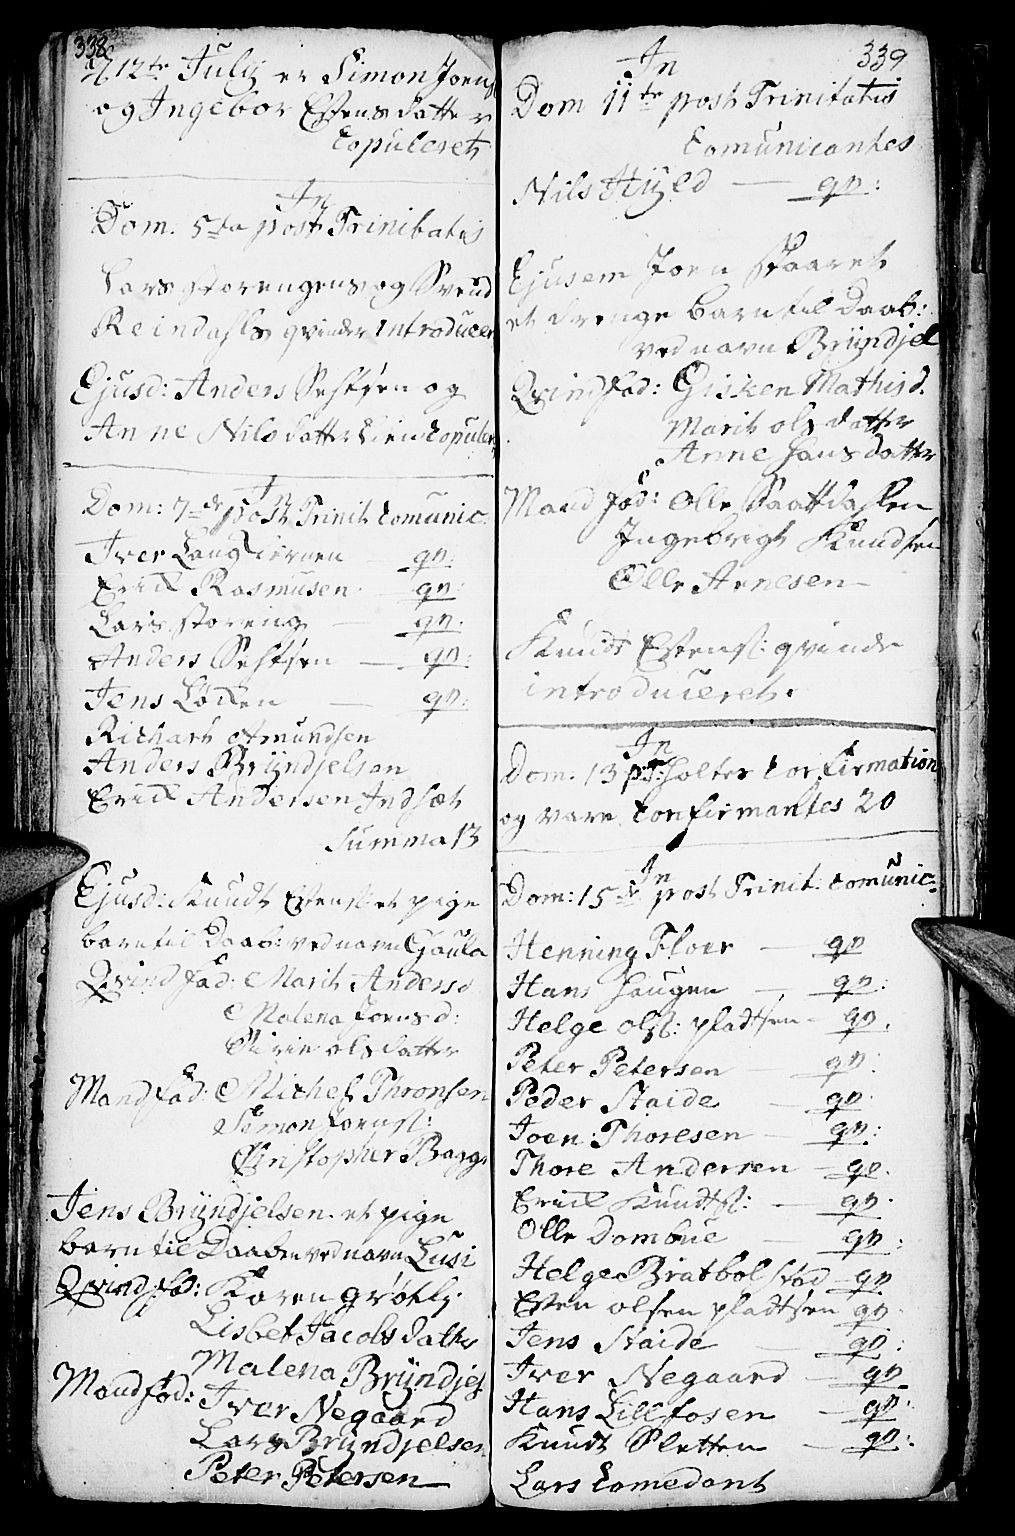 338
d 12te July er Simon Joens
og Ingebor Estensdatter
Copuleret
In
Dom. 5ta post Trinitatis
Lars Storengens og Svend
Reindahls qvinder Introducer
Ejusd: Anders Sestsen og
Anne Nilsdatter Lien Copuler
In
Dom: 7de post Trinit Comunic.
Iver Langtiernen qn:
Erick Rasmusen qn:
Lars Storeng — qn:
Anders Sestsen — qn:
Jens Løcken — qn:
Richart Amundsen
Anders Bryndjelsen
Erick Andersen Indset
Summa 13
Ejusd: Knudt Estens: et pige
barn til Daab: ved navn Gaula
Qvind fad: Marit Andersd
Malena Joensd:
Sirie olsdatter
Mand fad: Michel Thronsen
Simon Joens:
Christopher Bagge
Jens Bryndjelsen et pige
barn til Daaben ved navn Lusi
Qvind fad: Karen grøtly.
Lisbet Jacobsdatter
Malena Bryndjels
Mand fad: Iver Negaard
Lars Bryndjelsen
Peter Petersen
339
In
Dom 11te post Trinitatis
Comunicantes
Nils Hyld — qn:
Ejusem Joen Staaret
et drenge barn til Daab:
ved navn Bryndjel
Qvind fad: Gisken Mathisd.
Marit olsdatter
Anne Hansdatter
Mand fad: Olle Saattdahlen
Ingebrigt Knudsen
Olle Arnesen
Knudt Estens: qvinde
introduceret.
In
Dom. 13 pT: holter Confirmation
og vare Confirmantes 20
In
Dom: 15de post Trinit: Comunic:
Henning Floer — qn
Hans Haugen — qn:
Helge ols: pladtsen — qn.
Peter Petersen qn:
Peder Staide — qn:
Joen Thoresen — qn:
Thore Andersen — qn.
Erick Knudts: — qn.
Olle Dombue — qn:
Helge Bratbolstad — qn
Esten olsen pladtsen qn.
Jens Staide — qn:
Iver Negaard — qn.
Hans Lillfosen — qn:
Knudt Sletten — qn:
Lars Comedant